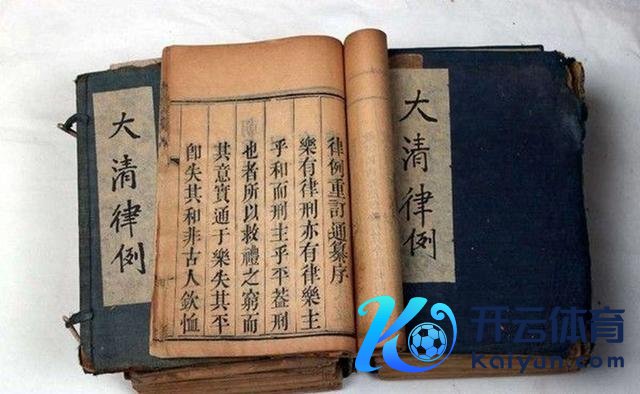 大清律例
律例重訂通纂序
樂有律刑亦有律樂主
乎和而刑主乎平蓋刑
也者所以救禮之窮而
其意實通于樂失其平
卽失其和非古人欽恤
大清律例
开云体育
Kaiyun.com